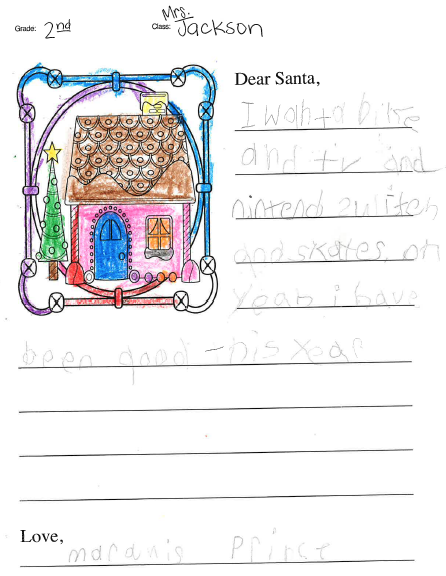 Grade: 2nd
Class: Mrs. Jackson
Dear Santa,
I want a bike
and tv and
nintend switch
and skates. oh
yeah i have
been good this year
Love,